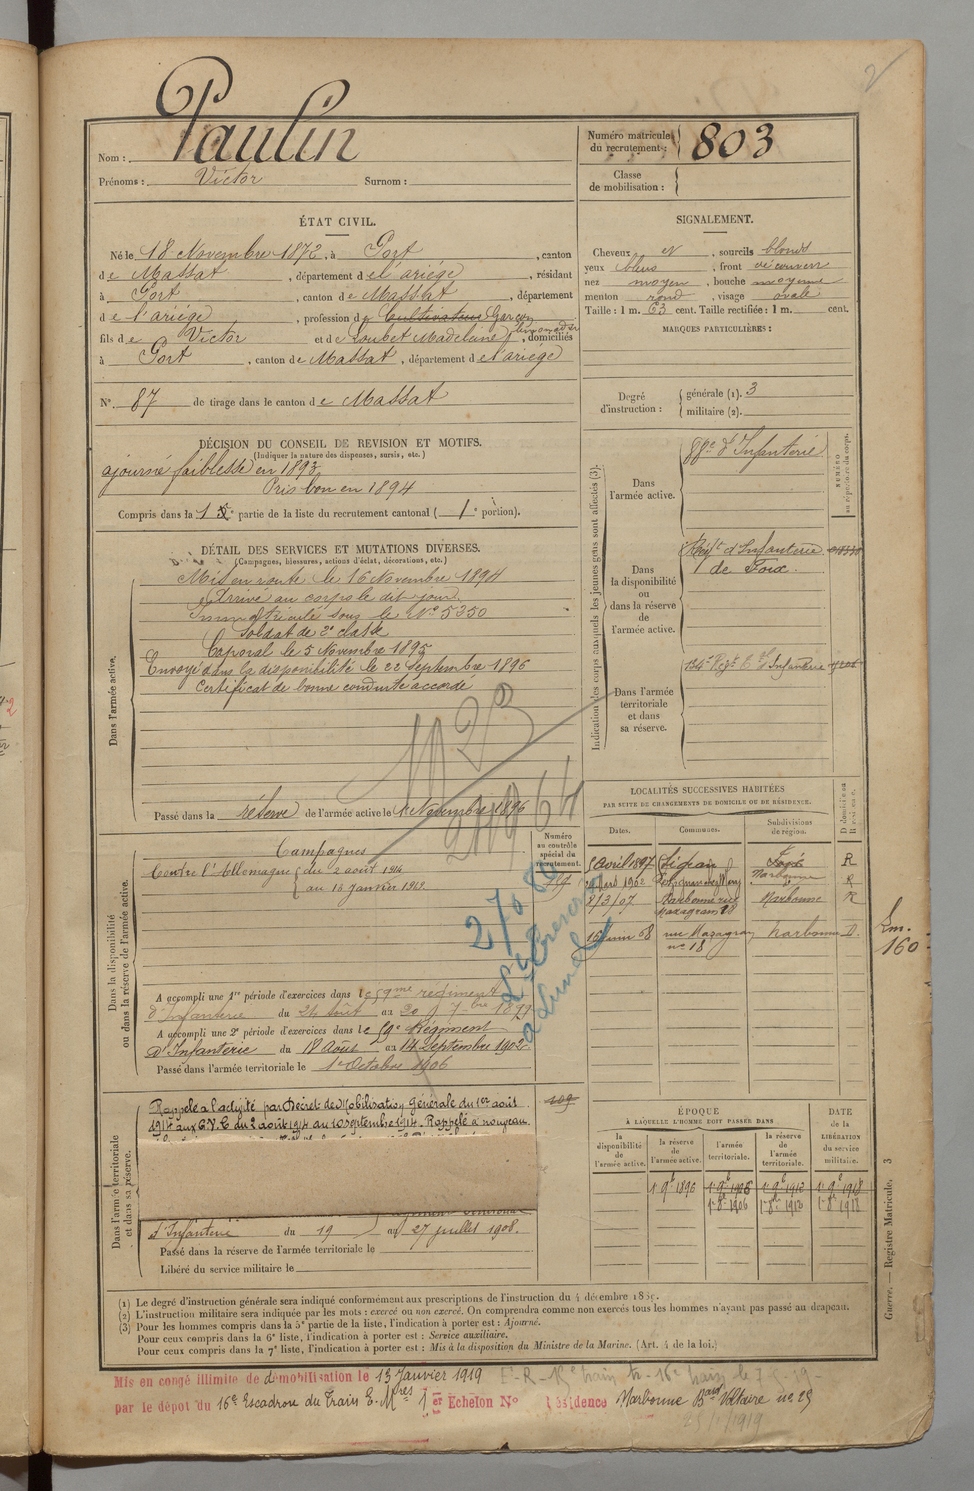 2
Paulin
Nom :
Prénoms : Victor Surnom :
Numéro matricule du recrutement : 803
Classe de mobilisation :
ÉTAT CIVIL.
Né le 18 Novembre 1872, à Port, canton
de Massat, département de l'ariége, résidant
à Port, canton de Massat, département
de l'ariége, profession de Cultivateur Garçon limonadier
fils de Victor et de Loubet Madelaine, domiciliés
à Port, canton de Massat, département de l'ariége
N° 87 de tirage dans le canton de Massat
SIGNALEMENT.
Cheveux N, sourcils blonds
yeux bleus, front découvert
nez moyen, bouche moyenne
menton rond, visage ovale
Taille : 1 m. 63 cent. Taille rectifiée : 1 m. cent.
MARQUES PARTICULIÈRES :
Degré d'instruction : générale (1). 3
militaire (2).
DÉCISION DU CONSEIL DE REVISION ET MOTIFS.
(Indiquer la nature des dispenses, sursis, etc.)
ajourné faiblesse en 1893
Pris bon en 1894
Compris dans la 1e partie de la liste du recrutement cantonal (1e portion).
DÉTAIL DES SERVICES ET MUTATIONS DIVERSES.
(Campagnes, blessures, actions d'éclat, décorations, etc.)
Dans l'armée active.
Mis en route le 16 Novembre 1894
Arrivé au corps le dit jour
Immatriculé sous le N° 5350
Soldat de 2e classe
Caporal le 5 Novembre 1895
Envoyé dans la disponibilité le 22 Septembre 1896
Certificat de bonne conduite accordé
Passé dans la réserve de l'armée active le 1 Novembre 1896
Indication des corps auxquels les jeunes gens sont affectés (3).
NUMÉRO au répertoire du corps.
Dans l'armée active.
88e d'Infanterie
Dans la disponibilité ou dans la réserve de l'armée active.
Régt d'Infanterie
de Foix.
Dans l'armée territoriale et dans sa réserve.
134e Regt Tal d'Infanterie
Dans la disponibilité ou dans la réserve de l'armée active.
Numéro au contrôle spécial du recrutement.
Campagnes
Contre l'Allemagne du 2 août 1914
au 16 Janvier 1919
A accompli une 1re période d'exercices dans le 59me régiment
d'Infanterie du 24 Août au 20 7bre 1899
A accompli une 2e période d'exercices dans le 59e Régiment
d'Infanterie du 18 Août au 14 Septembre 1902
Passé dans l'armée territoriale le 1er Octobre 1906
LOCALITÉS SUCCESSIVES HABITÉES
PAR SUITE DE CHANGEMENTS DE DOMICILE OU DE RÉSIDENCE.
Dates. Communes. Subdivisions de région. D domicile ou R résidence.
5 Avril 1897 Lézignan R
Mars 1902 Narbonne R
2/3/07 Narbonne rue Mazagran 18 Narbonne R
16 Juin 08 rue Mazagran n° 18 Narbonne D.
160
Dans l'armée territoriale et dans sa réserve.
Rappelé à l'activité par Décret de Mobilisation Générale du 1er août
1914 aux G.V.C du 2 août 1914 au 10 septembre 1914. Rappelé à nouveau
109
d'Infanterie du 19 au 27 juillet 1908.
Passé dans la réserve de l'armée territoriale le
Libéré du service militaire le
ÉPOQUE
À LAQUELLE L'HOMME DOIT PASSER DANS
la disponibilité de l'armée active. la réserve de l'armée active. l'armée territoriale. la réserve de l'armée territoriale.
DATE de la LIBÉRATION du service militaire.
1 9e 1896 1 9e 1908 1 9e 1912 1 9e 1918
1 8e 1906 1 8e 1912 1 8e 1918
Guerre. — Registre Matricule. 3
(1) Le degré d'instruction générale sera indiqué conformément aux prescriptions de l'instruction du 4 décembre 1889.
(2) L'instruction militaire sera indiquée par les mots : exercé ou non exercé. On comprendra comme non exercés tous les hommes n'ayant pas passé au drapeau.
(3) Pour les hommes compris dans la 5e partie de la liste, l'indication à porter est : Ajourné.
Pour ceux compris dans la 6e liste, l'indication à porter est : Service auxiliaire.
Pour ceux compris dans la 7e liste, l'indication à porter est : Mis à la disposition du Ministre de la Marine. (Art. 4 de la loi.)
Mis en congé illimité de démobilisation le 13 Janvier 1919
par le dépôt du 16e Escadron du Train E. Mres 1er Echelon N° Résidence Narbonne Bard Voltaire n° 25